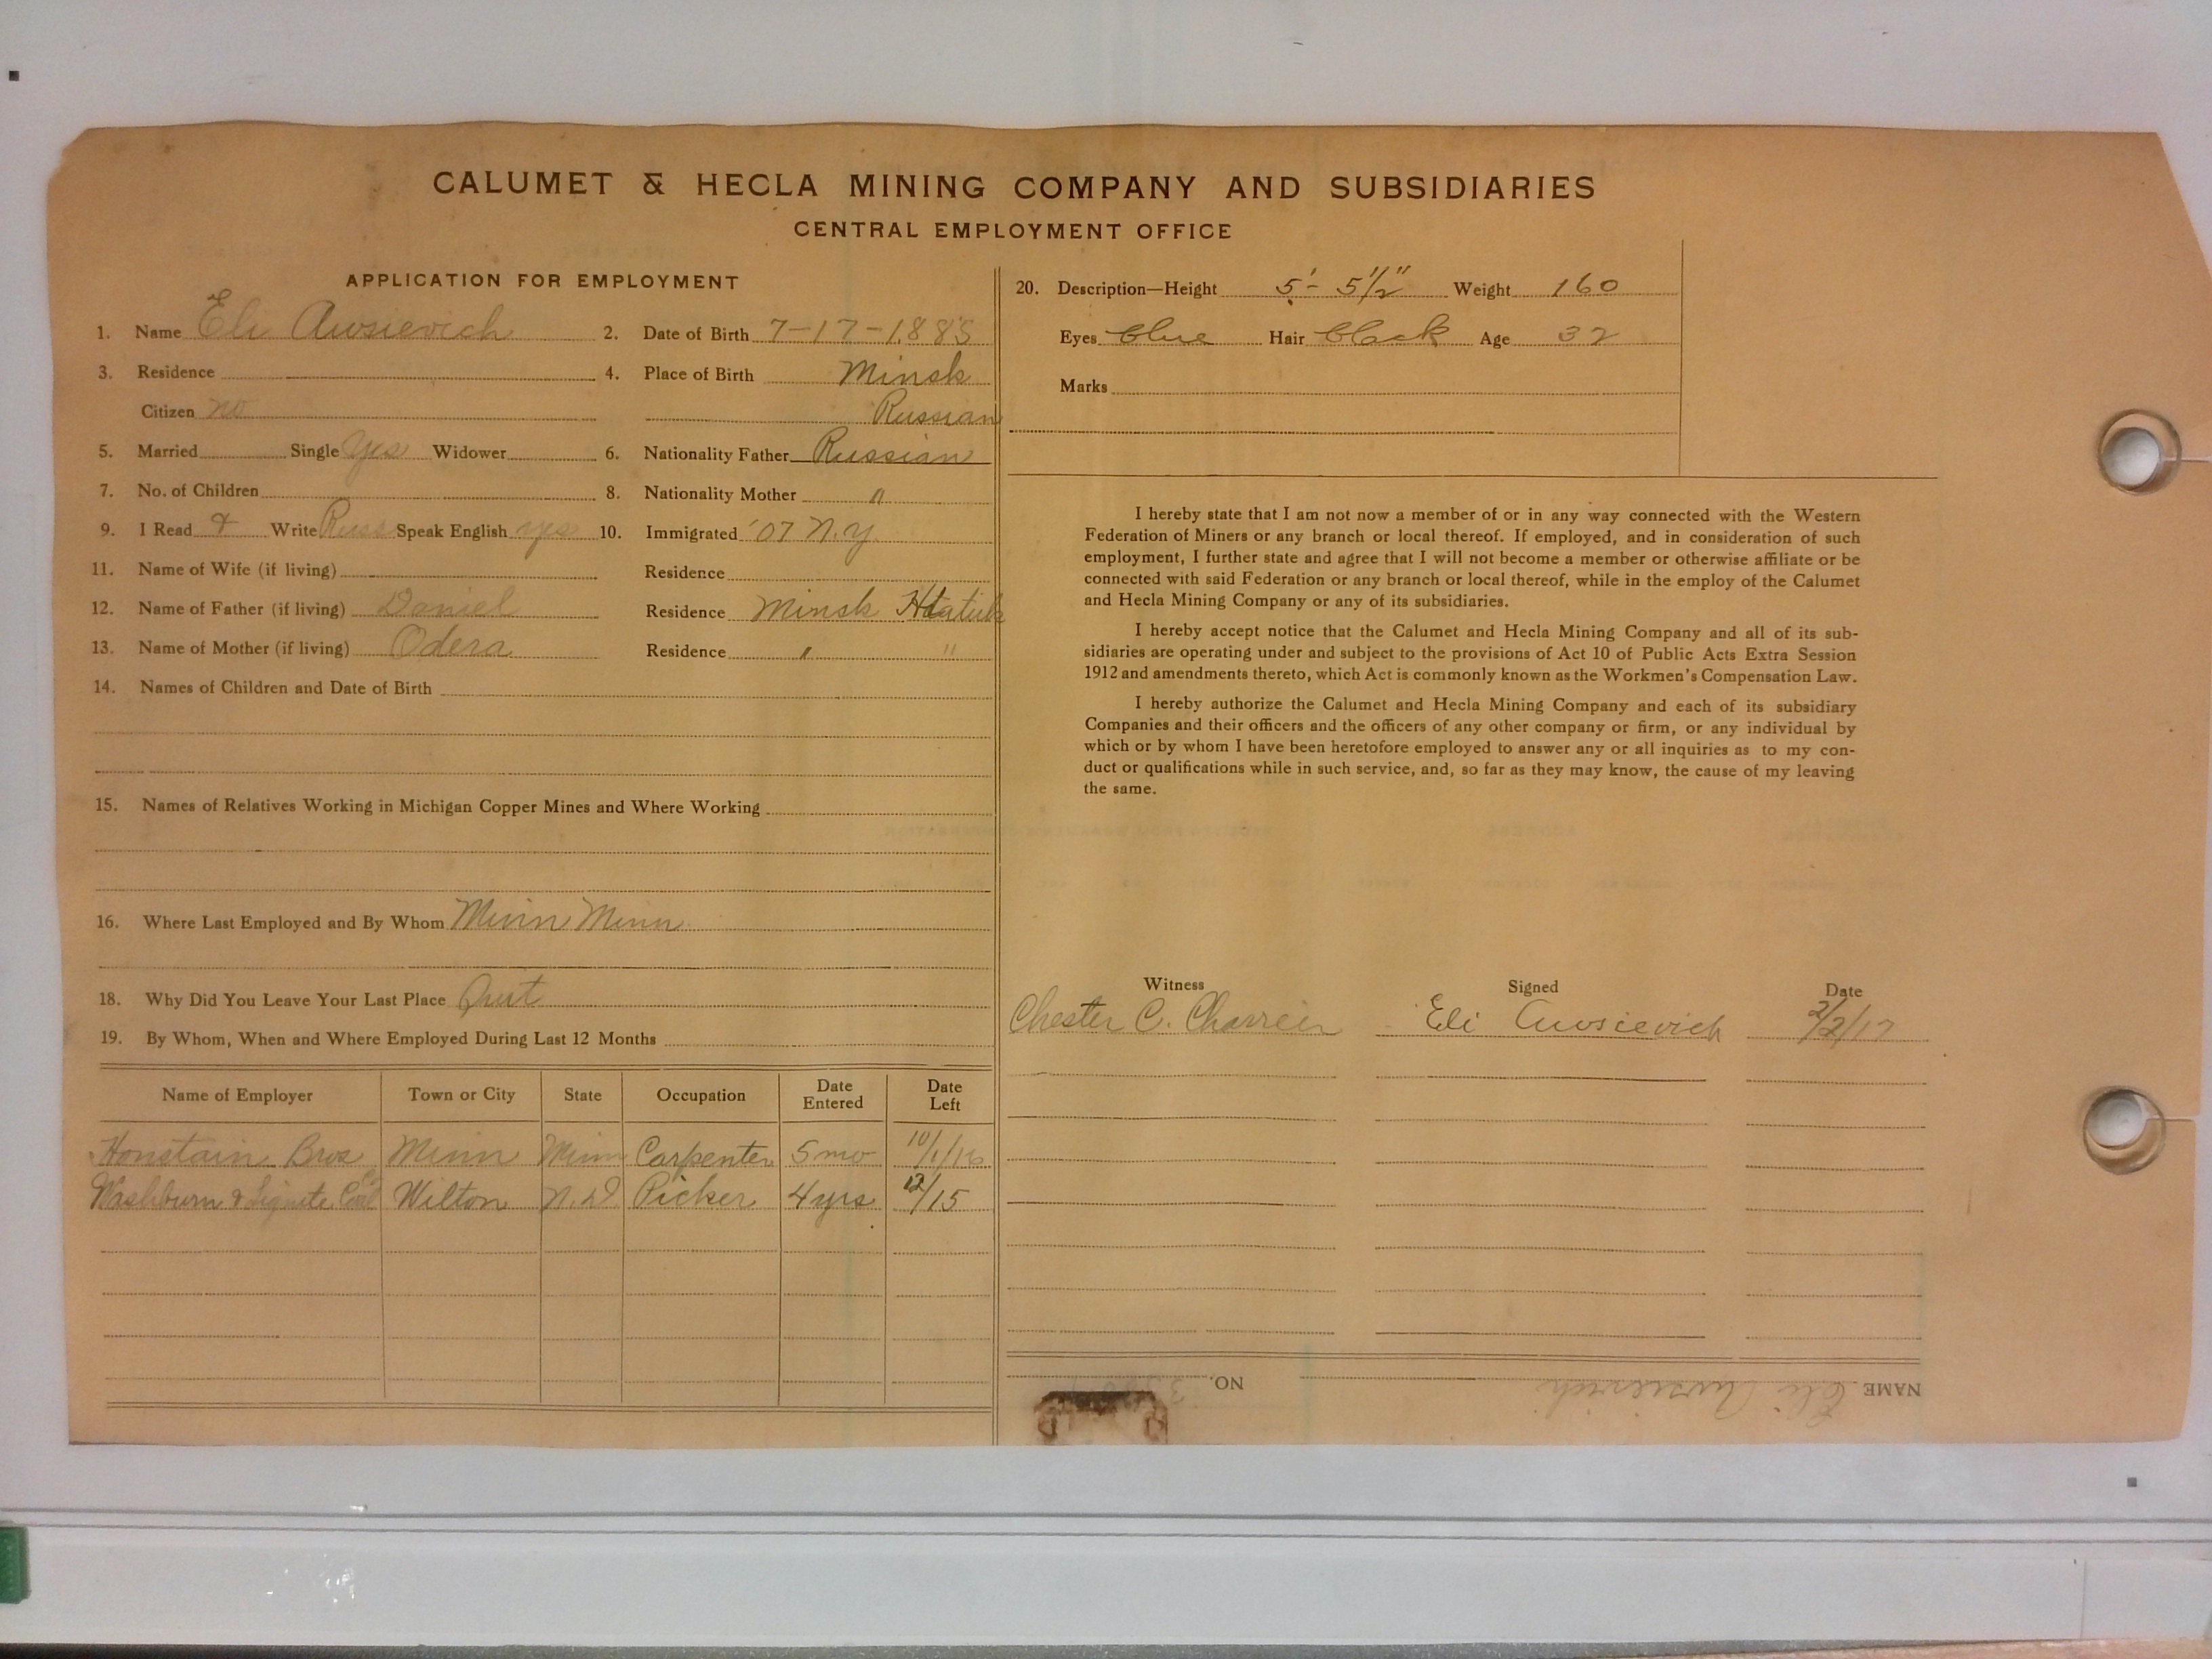 CALUMET & HECLA MINING COMPANY AND SUBSIDIARIES
CENTRAL EMPLOYMENT OFFICE
APPLICATION FOR EMPLOYMENT
1. Name Eli Awsievich 2. Date of Birth 7-17-1885
3. Residence 4. Place of Birth Minsk
Citizen no Russian
5. Married Single yes Widower 6. Nationality Father Russian
7. No. of Children 8. Nationality Mother "
9. I Read & Write Russ Speak English yes 10. Immigrated '07 N.Y.
11. Name of Wife (if living) Residence
12. Name of Father (if living) Daniel Residence Minsk
13. Name of Mother (if living) Odera Residence " "
14. Names of Children and Date of Birth
15. Names of Relatives Working in Michigan Copper Mines and Where Working
16. Where Last Employed and By Whom Minn Minn.
18. Why Did You Leave Your Last Place Quit
19. By Whom, When and Where Employed During Last 12 Months
Name of Employer Town or City State Occupation Date Entered Date Left
Honstain Bros Minn Minn Carpenter 5 mo 10/1/16
Washburn & Lignite Coal Co Wilton N.D. Picker 4 yrs 12/15
20. Description—Height 5'- 5 1/2" Weight 160
Eyes blue Hair black Age 32
Marks
I hereby state that I am not now a member of or in any way connected with the Western
Federation of Miners or any branch or local thereof. If employed, and in consideration of such
employment, I further state and agree that I will not become a member or otherwise affiliate or be
connected with said Federation or any branch or local thereof, while in the employ of the Calumet
and Hecla Mining Company or any of its subsidiaries.
I hereby accept notice that the Calumet and Hecla Mining Company and all of its sub-
sidiaries are operating under and subject to the provisions of Act 10 of Public Acts Extra Session
1912 and amendments thereto, which Act is commonly known as the Workmen's Compensation Law.
I hereby authorize the Calumet and Hecla Mining Company and each of its subsidiary
Companies and their officers and the officers of any other company or firm, or any individual by
which or by whom I have been heretofore employed to answer any or all inquiries as to my con-
duct or qualifications while in such service, and, so far as they may know, the cause of my leaving
the same.
Witness Signed Date
Chester C. Eli Awsievich 2/2/17
NAME Eli Awsievich NO.